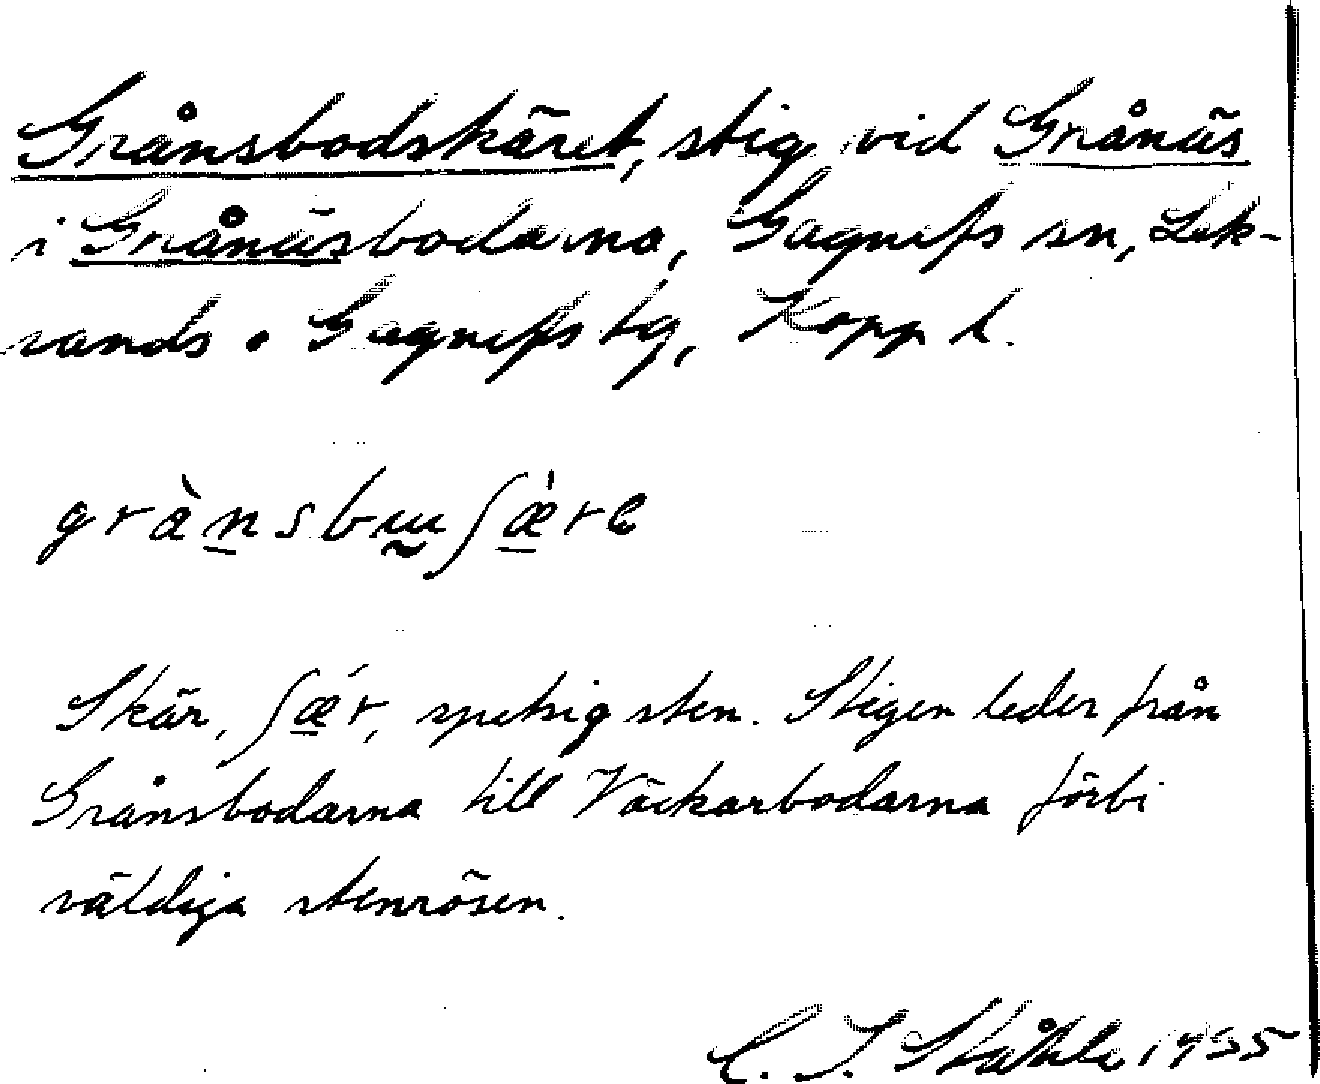 Grånsbodskäret, stig vid Grånäs
i Grånäsbodarna, Gagnefs sn, Lek-
sands o Gagnefs tg, Kopp l.
grànsbɯʃæ̀re
Skär, ʃǽr, spetsig sten. Stigen leder från
Grånsbodarna till Väckarbodarna förbi
väldiga stenrösen.
C. I. Ståhle 1935